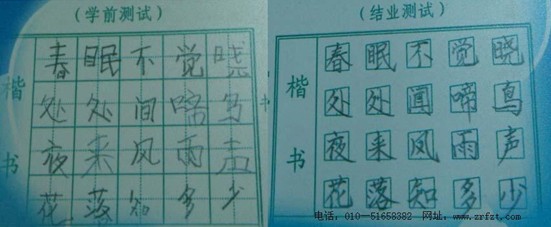 (学前测试)
楷书
春眠不觉晓
处处间啼鸟
夜来风雨声
花落知多少
(结业测试)
楷书
春眠不觉晓
处处闻啼鸟
夜来风雨声
花落知多少
电话，010-51658382 网址，www.zrfzt.com